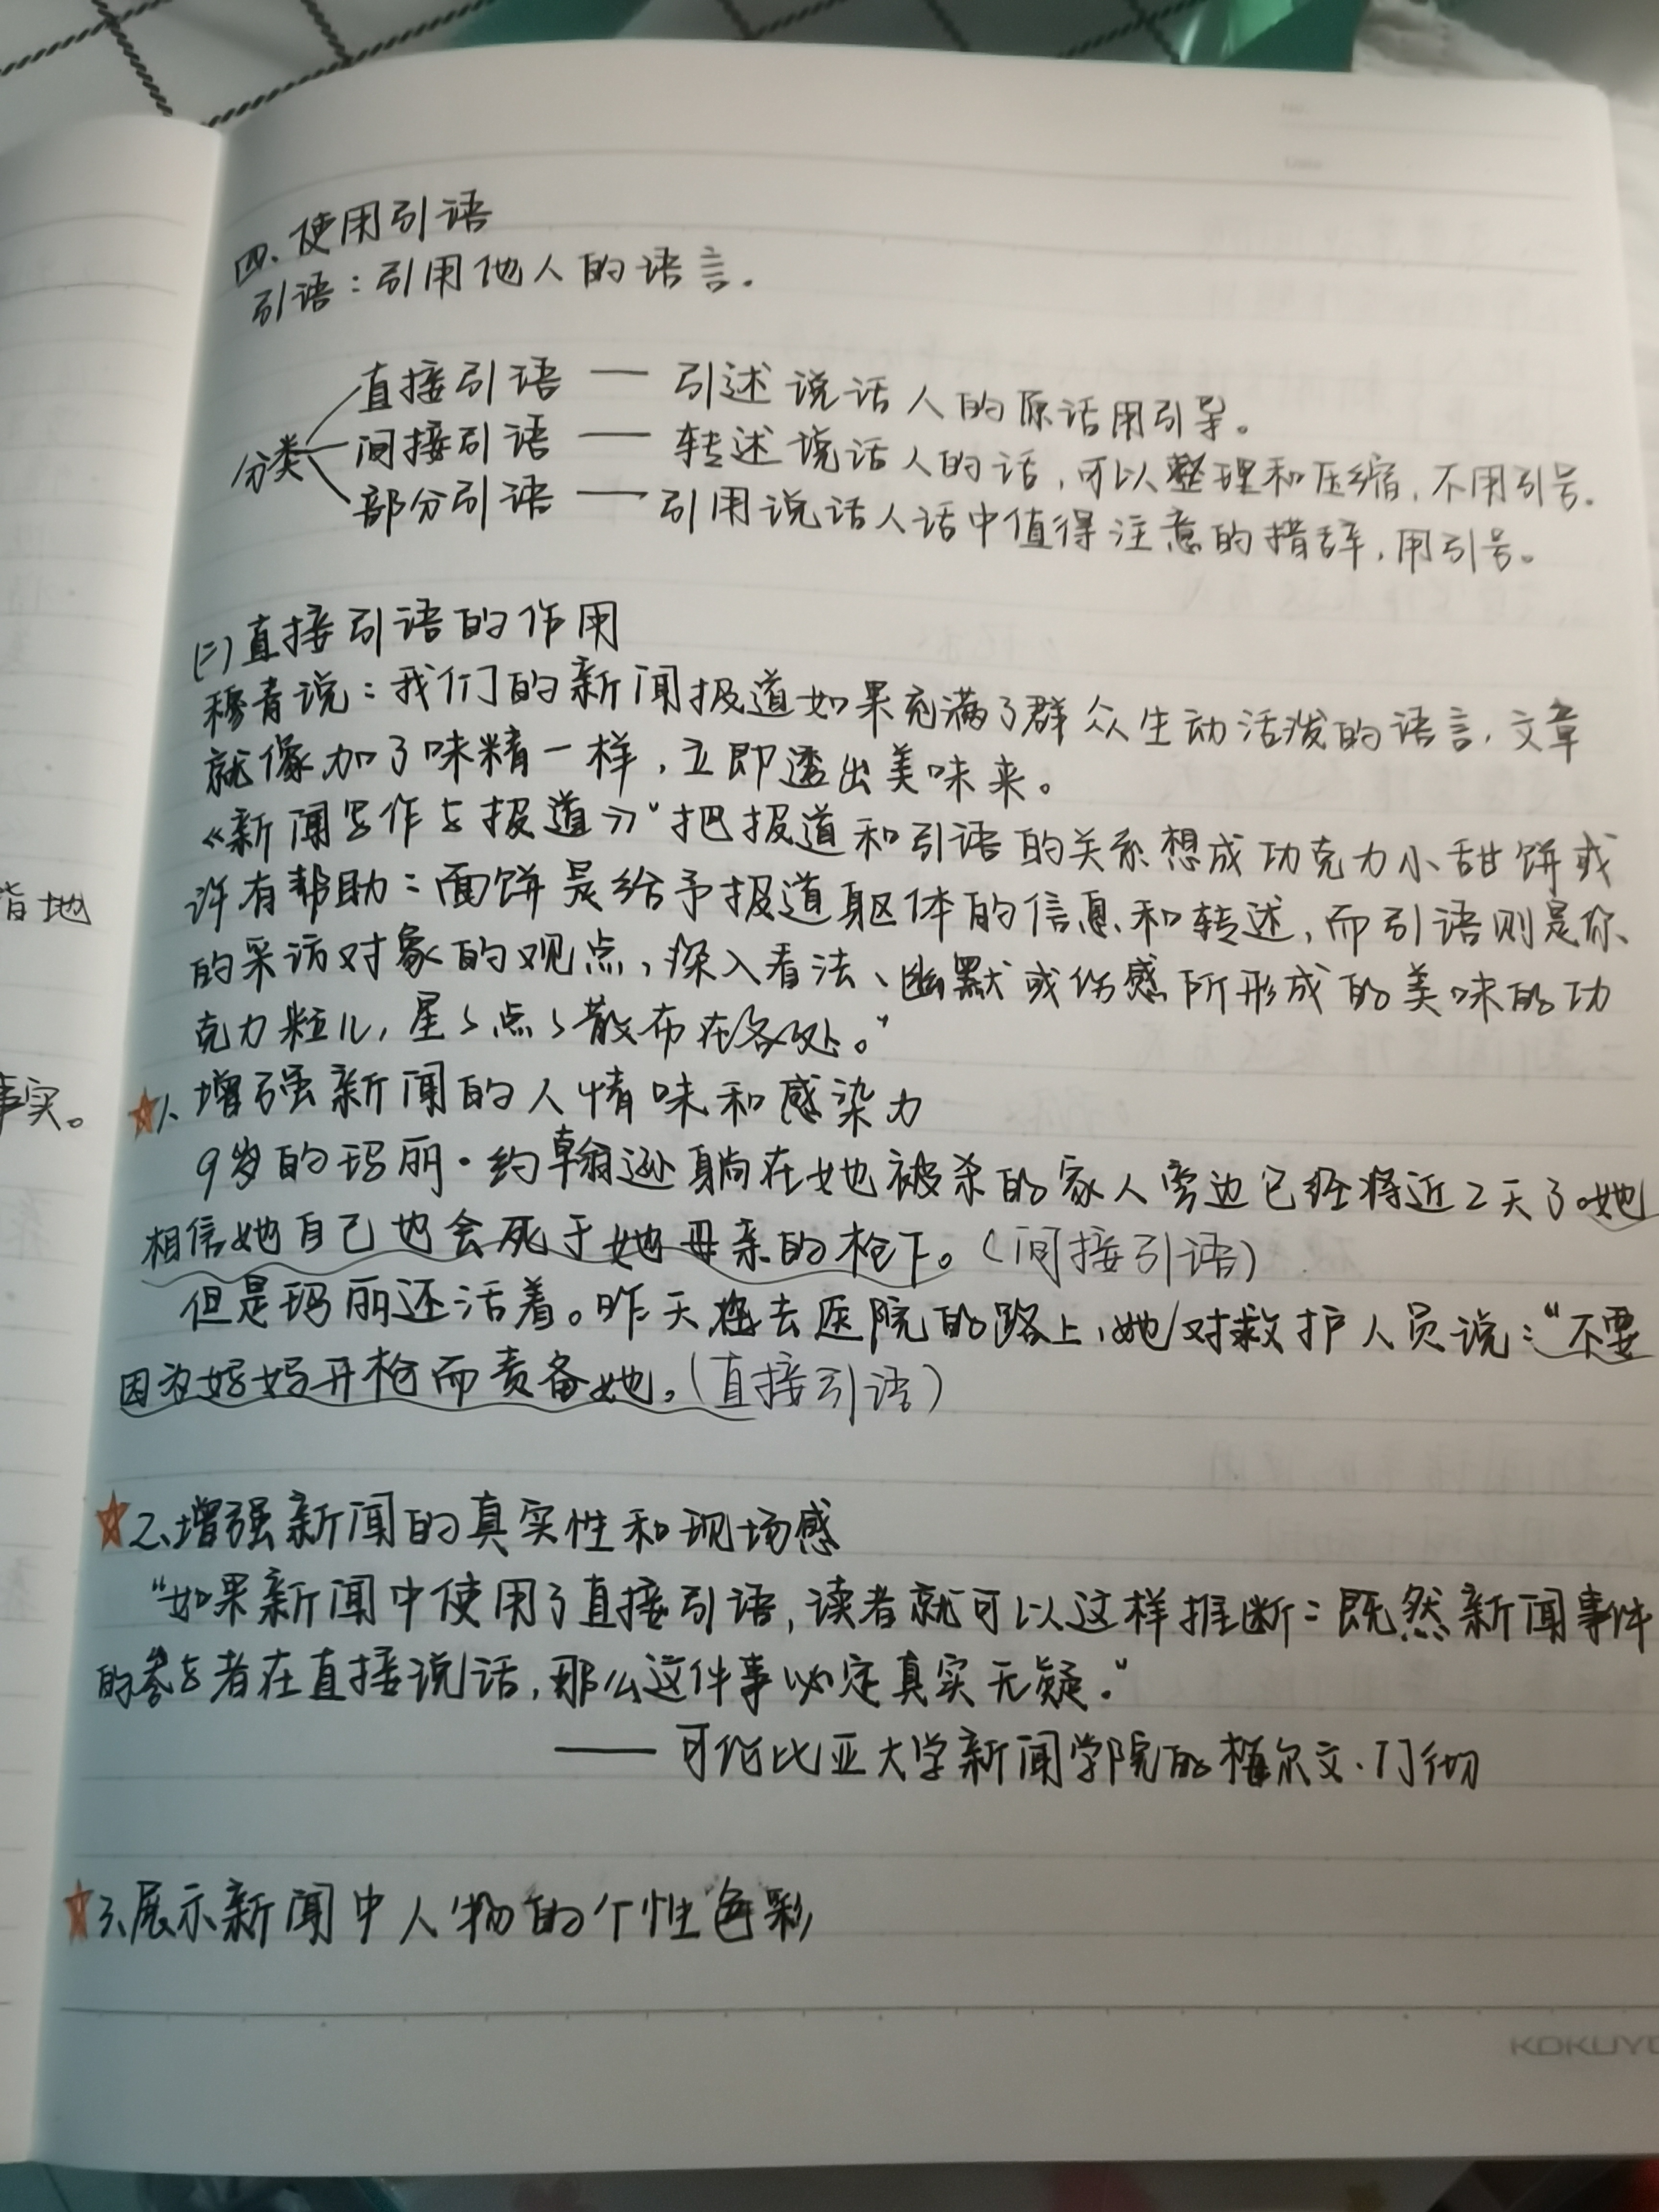 四、使用引语
引语：引用他人的语言.
直接引语 — 引述说话人的原话用引号。
分类 间接引语 — 转述说话人的话，可以整理和压缩，不用引号.
部分引语 — 引用说话人话中值得注意的措辞，用引号。
(二)直接引语的作用
穆青说：我们的新闻报道如果充满了群众生动活泼的语言，文章
就像加了味精一样，立即透出美味来。
《新闻写作与报道》"把报道和引语的关系想成功克力小甜饼或
许有帮助：面饼是给予报道躯体的信息和转述，而引语则是你
的采访对象的观点，深入看法、幽默或伤感所形成的美味的功
克力粒儿，星々点々散布在各处。"
皆地
事实。
1、增强新闻的人情味和感染力
9岁的玛丽·约翰逊躺在她被杀的家人旁边已经将近2天了。她
相信她自己也会死于她母亲的枪下。（间接引语）
但是玛丽还活着。昨天在去医院的路上，她对救护人员说："不要
因为妈妈开枪而责备她。（直接引语）
2、增强新闻的真实性和现场感
"如果新闻中使用了直接引语，读者就可以这样推断：既然新闻事件
的参与者在直接说话，那么这件事必定真实无疑."
—— 可伦比亚大学新闻学院的梅尔文·门彻
3、展示新闻中人物的个性色彩
KOKUYO